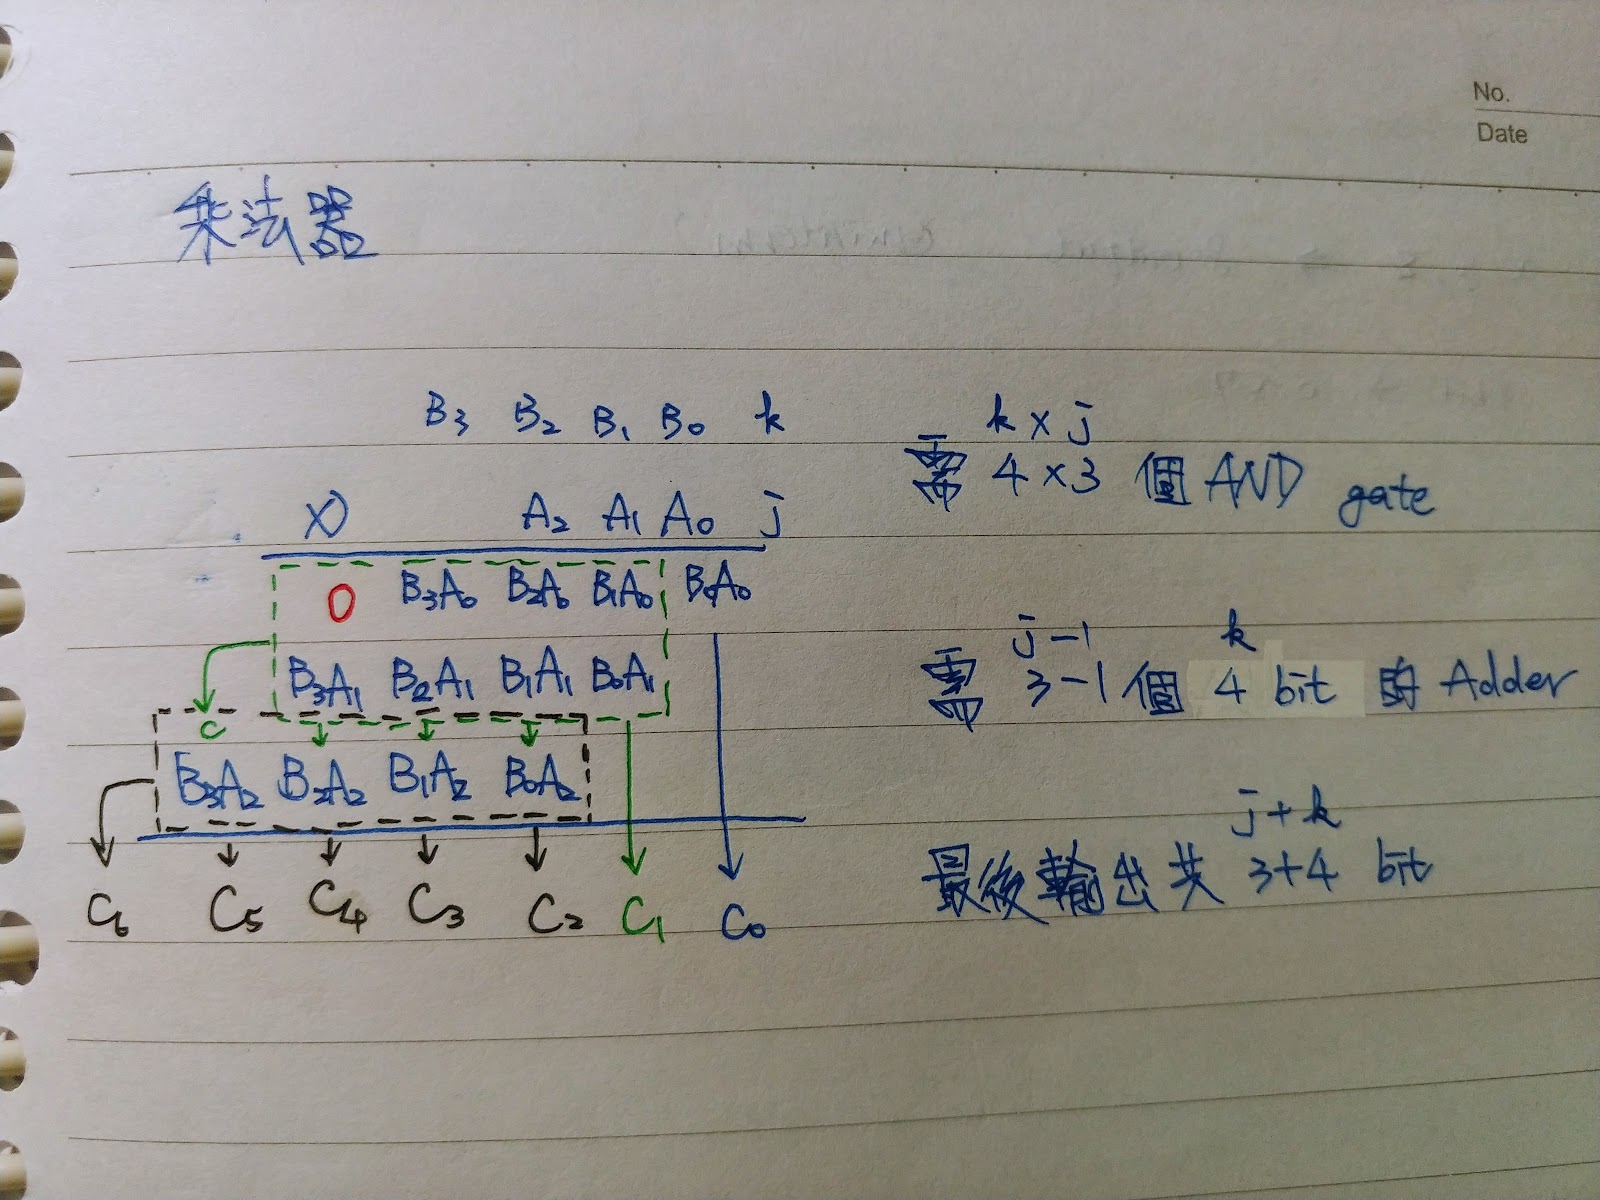 No.
Date
乘法器
B₃ B₂ B₁ B₀ k
X) A₂ A₁ A₀ j
0 B₃A₀ B₂A₀ B₁A₀ B₀A₀
B₃A₁ B₂A₁ B₁A₁ B₀A₁
c
B₃A₂ B₂A₂ B₁A₂ B₀A₂
C₆ C₅ C₄ C₃ C₂ C₁ C₀
k x j
需 4 x 3 個 AND gate
j-1 k
需 3-1 個 4 bit 的 Adder
j+k
最後輸出共 3+4 bit